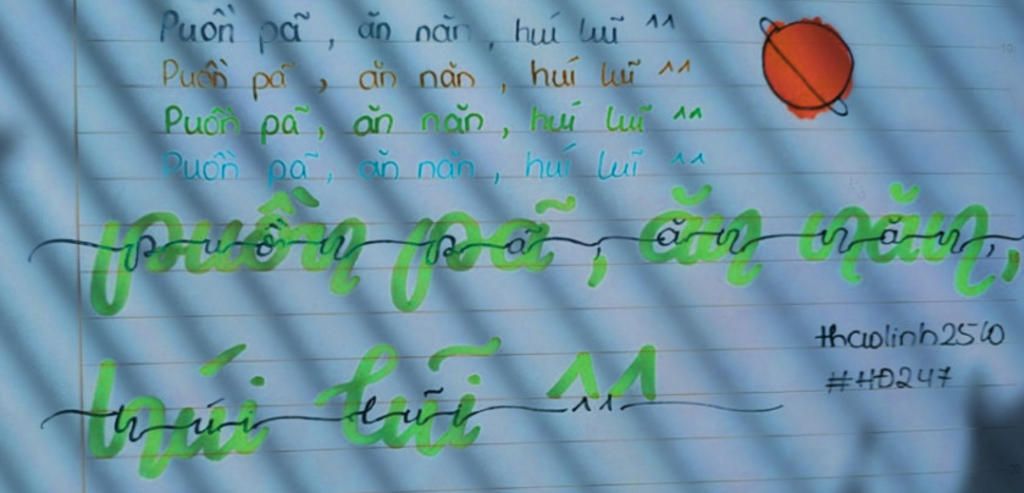 Puồn pã, ăn năn, huí luĩ ^^
Puồn pã, ăn năn, huí luĩ ^^
Puồn pã, ăn năn, huí luĩ ^^
Puồn pã, ăn năn, huí luĩ ^^
puồn pã, ăn năn,
húi lũi ^^
thaolinh2510
#HĐ247